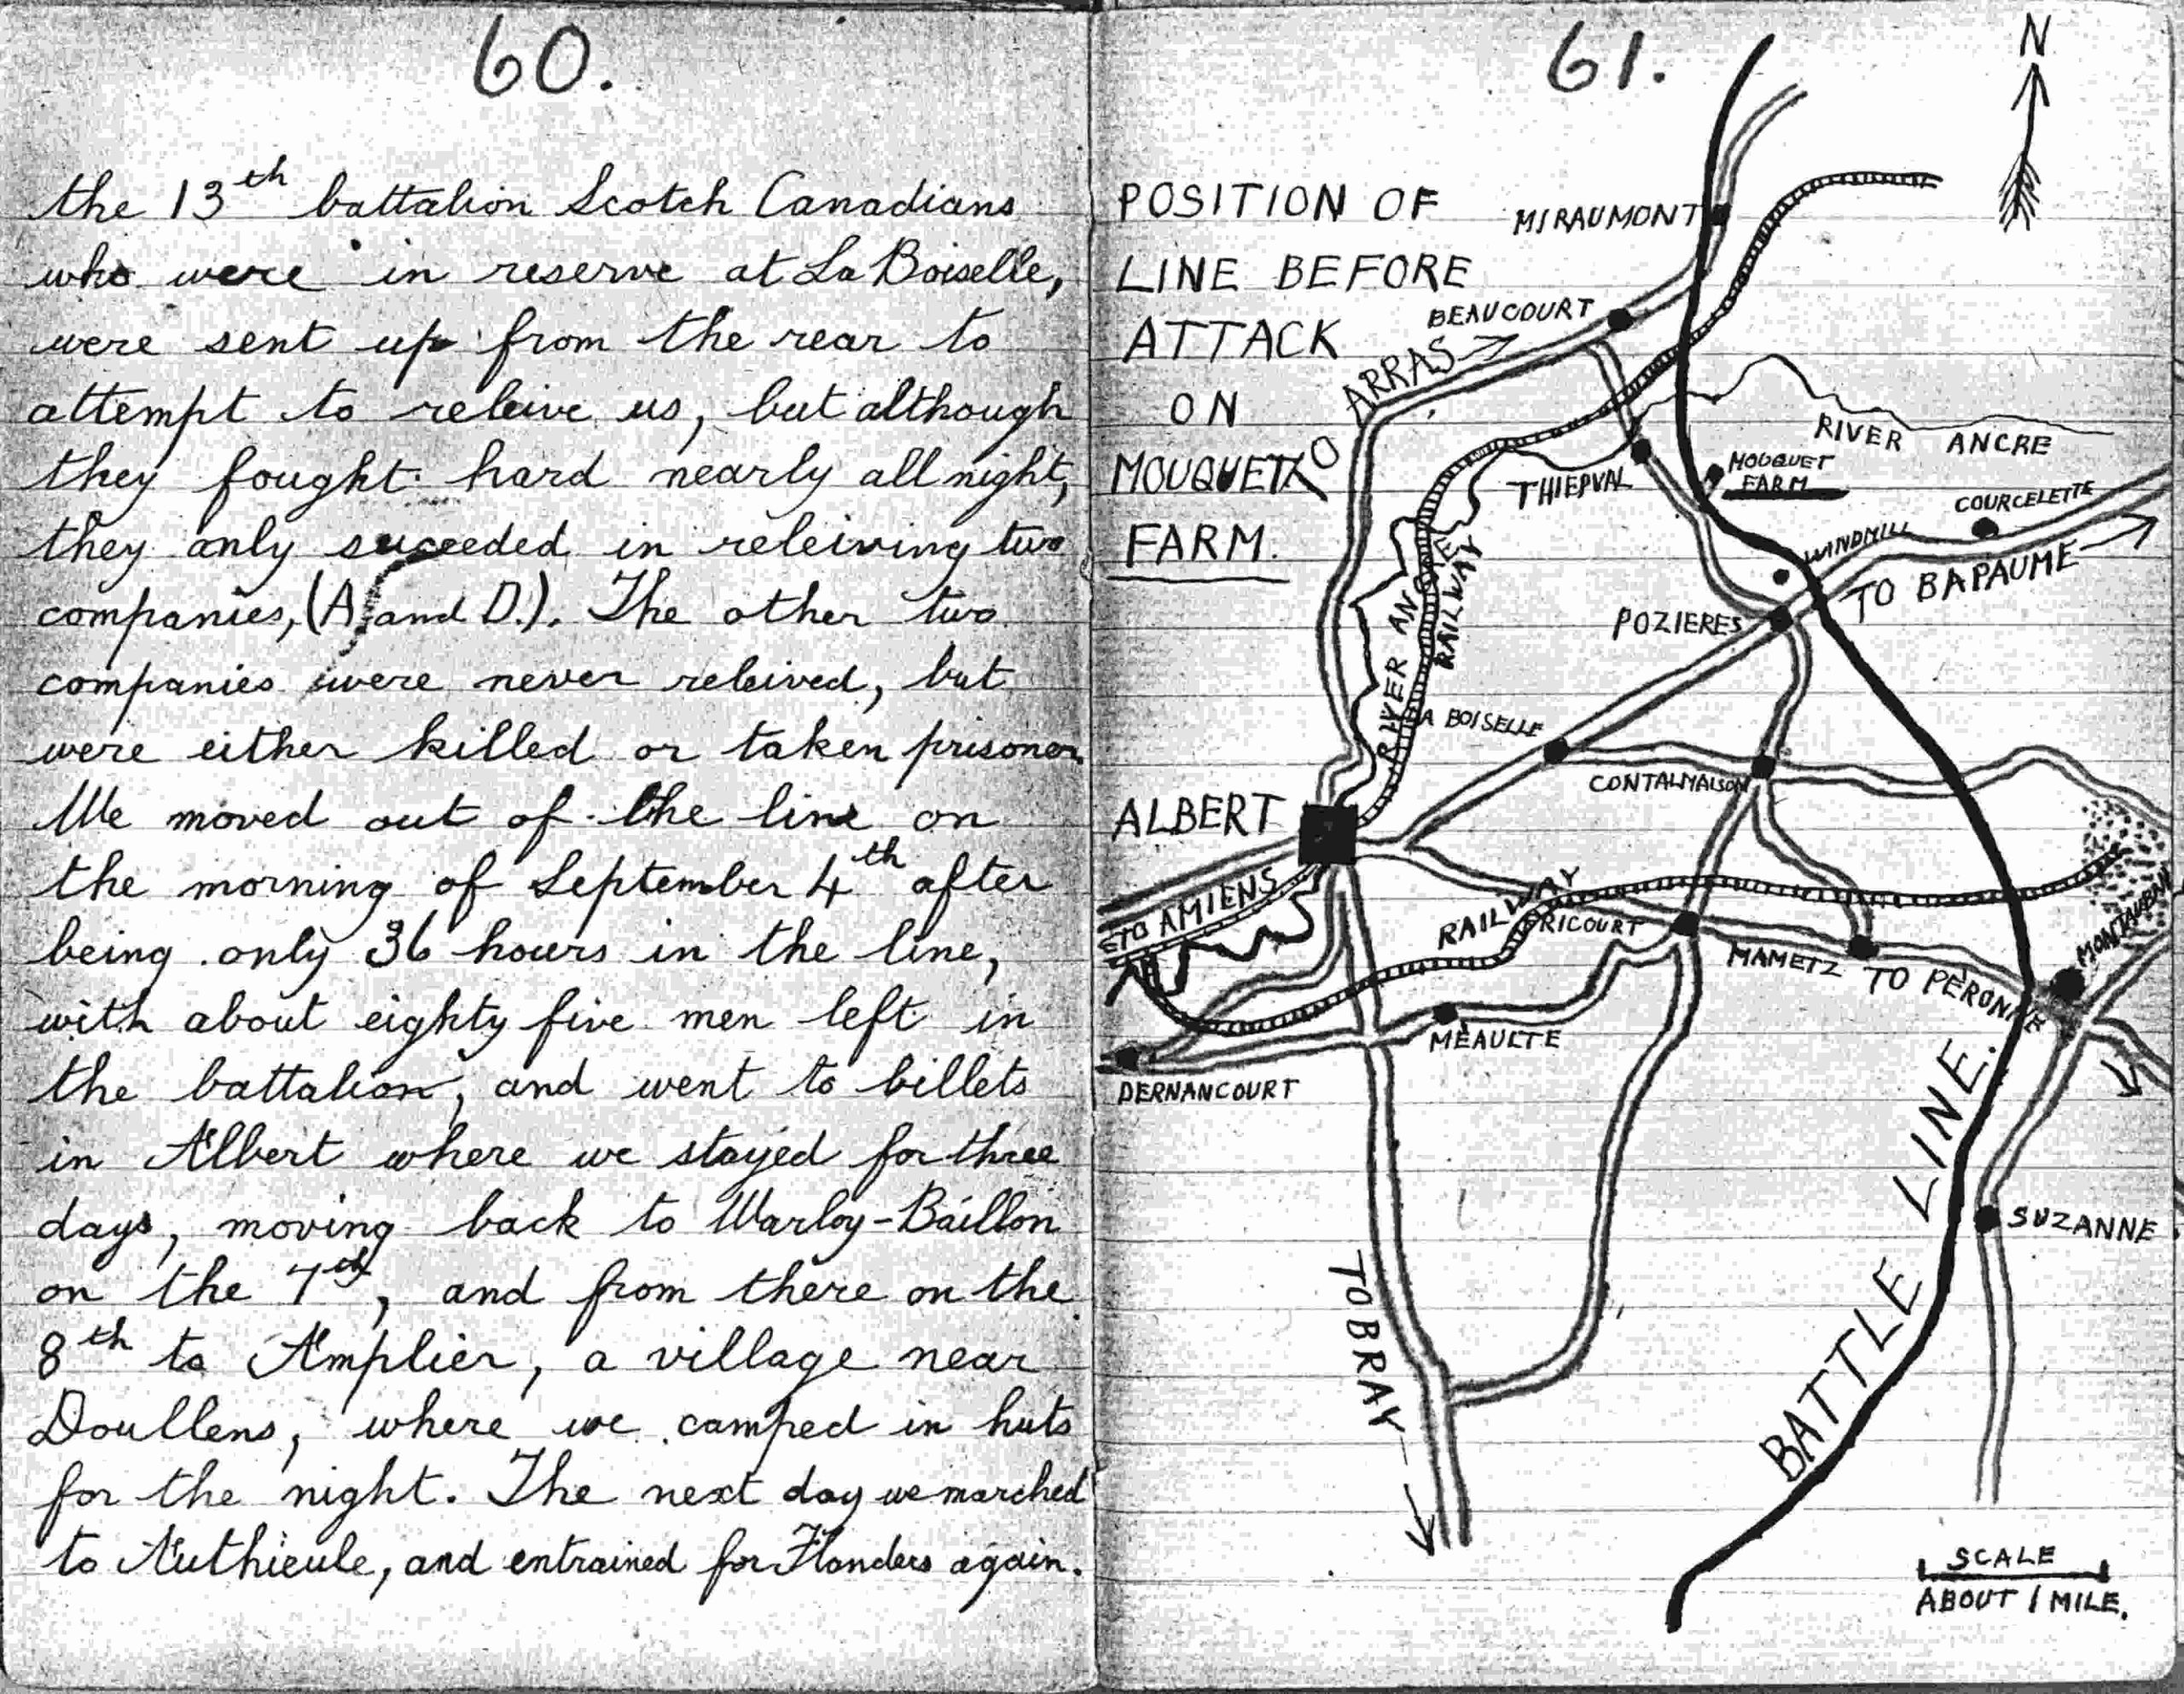 60.
the 13th battalion Scotch Canadians
who were in reserve at La Boiselle,
were sent up from the rear to
attempt to releive us, but although
they fought hard nearly all night,
they only suceeded in releiving two
companies, (A and D.). The other two
companies were never releived, but
were either killed or taken prisoner.
We moved out of the line on
the morning of September 4th after
being only 36 hours in the line,
with about eighty five men left in
the battalion, and went to billets
in Albert where we stayed for three
days, moving back to Warloy-Baillon
on the 7th, and from there on the
8th to Amplier, a village near
Doullens, where we camped in huts
for the night. The next day we marched
to Authieule, and entrained for Flanders again.
61.
N
POSITION OF
LINE BEFORE
ATTACK
ON
MOUQUET
FARM.
MIRAUMONT
BEAUCOURT
TO ARRAS
RIVER ANCRE
THIEPVAL
MOUQUET
FARM
COURCELETTE
WINDMILL
TO BAPAUME
POZIERES
RIVER ANCRE
RAILWAY
LA BOISELLE
CONTALMAISON
ALBERT
TO AMIENS
RAILWAY
FRICOURT
MAMETZ
TO PERONNE
MONTAUBAN
MÉAULTE
DERNANCOURT
BATTLE LINE.
SUZANNE
TO BRAY
SCALE
ABOUT 1 MILE.